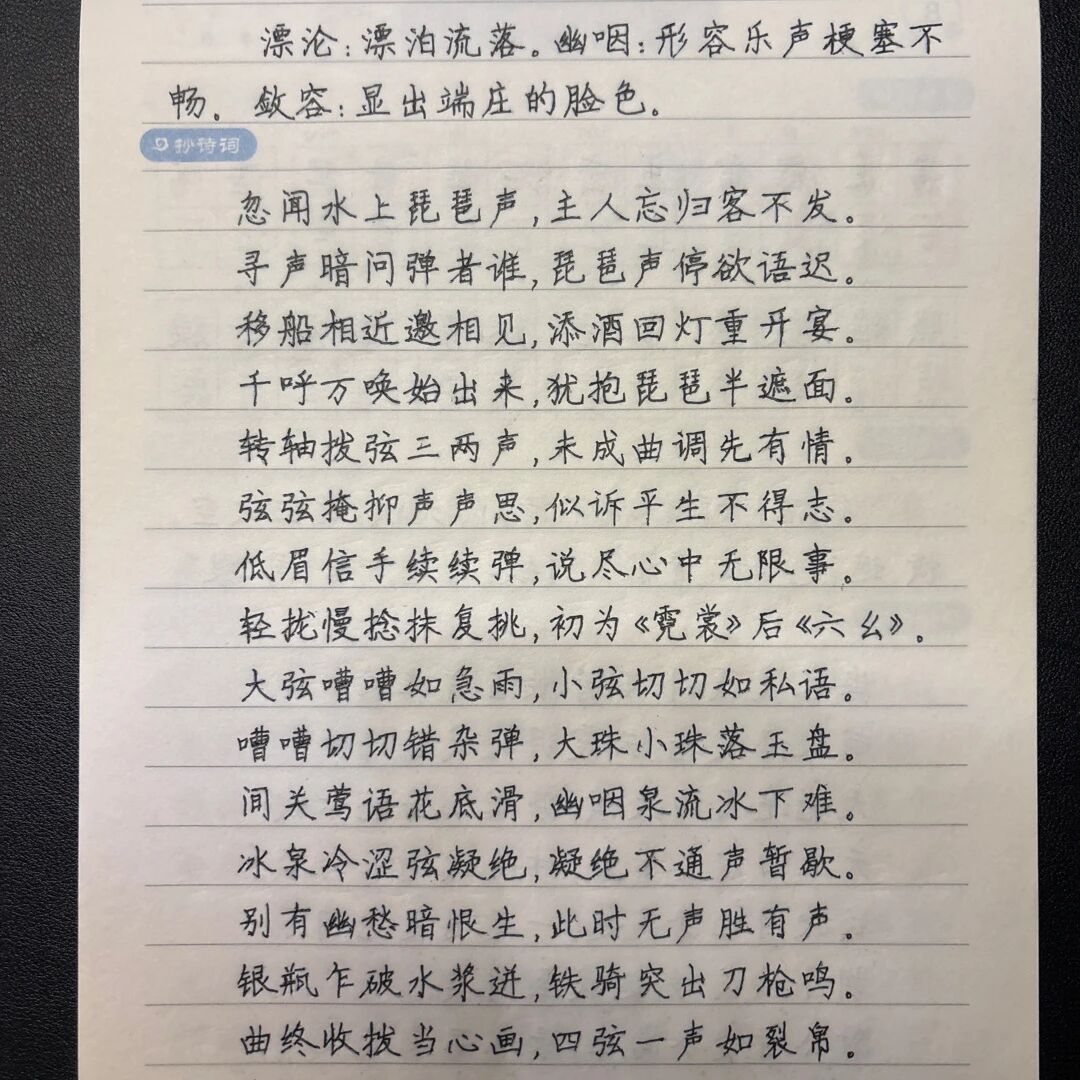 漂沦：漂泊流落。幽咽：形容乐声梗塞不
畅。敛容：显出端庄的脸色。
抄诗词
忽闻水上琵琶声，主人忘归客不发。
寻声暗问弹者谁，琵琶声停欲语迟。
移船相近邀相见，添酒回灯重开宴。
千呼万唤始出来，犹抱琵琶半遮面。
转轴拨弦三两声，未成曲调先有情。
弦弦掩抑声声思，似诉平生不得志。
低眉信手续续弹，说尽心中无限事。
轻拢慢捻抹复挑，初为《霓裳》后《六幺》。
大弦嘈嘈如急雨，小弦切切如私语。
嘈嘈切切错杂弹，大珠小珠落玉盘。
间关莺语花底滑，幽咽泉流冰下难。
冰泉冷涩弦凝绝，凝绝不通声暂歇。
别有幽愁暗恨生，此时无声胜有声。
银瓶乍破水浆迸，铁骑突出刀枪鸣。
曲终收拨当心画，四弦一声如裂帛。